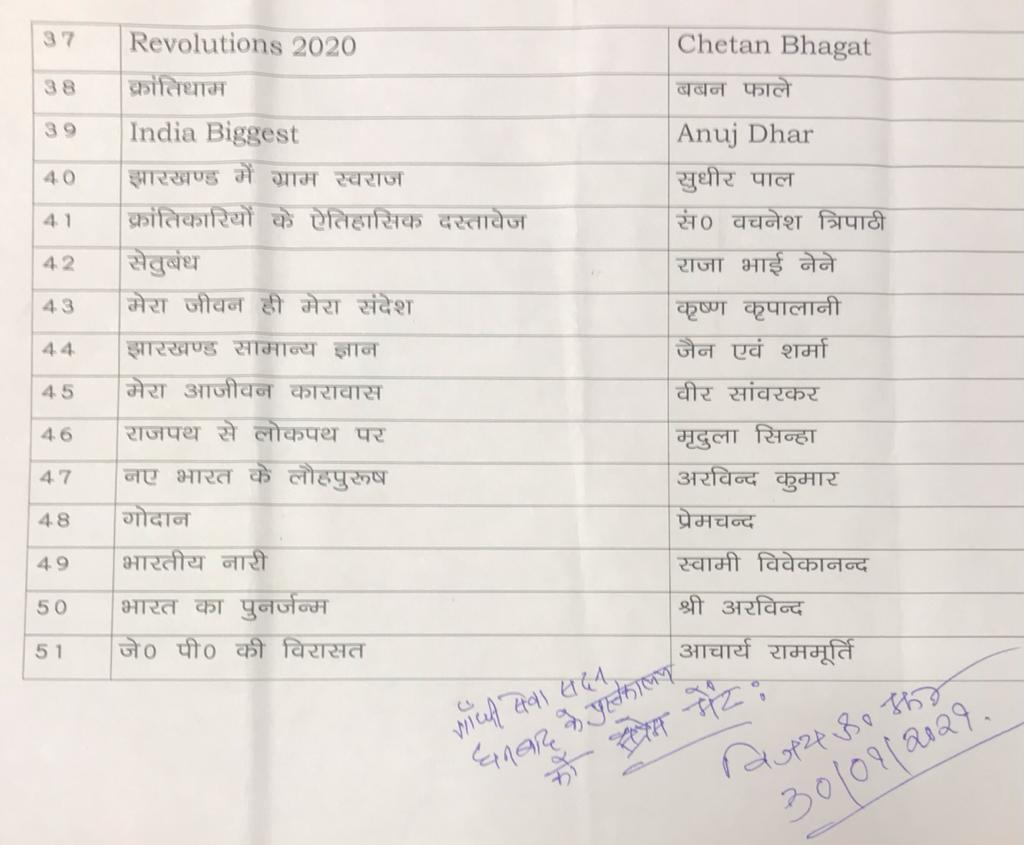 37 Revolutions 2020 Chetan Bhagat
38 क्रांतिधाम बबन फाले
39 India Biggest Anuj Dhar
40 झारखण्ड में ग्राम स्वराज सुधीर पाल
41 क्रांतिकारियों के ऐतिहासिक दस्तावेज सं० वचनेश त्रिपाठी
42 सेतुबंध राजा भाई नेने
43 मेरा जीवन ही मेरा संदेश कृष्ण कृपालानी
44 झारखण्ड सामान्य ज्ञान जैन एवं शर्मा
45 मेरा आजीवन कारावास वीर सांवरकर
46 राजपथ से लोकपथ पर मृदुला सिन्हा
47 नए भारत के लौहपुरूष अरविन्द कुमार
48 गोदान प्रेमचन्द
49 भारतीय नारी स्वामी विवेकानन्द
50 भारत का पुनर्जन्म श्री अरविन्द
51 जे० पी० की विरासत आचार्य राममूर्ति
गाँधी सेवा सदन
धनबाद के पुस्तकालय
को सप्रेम भेंट :
विजय कु०
30/01/2021.